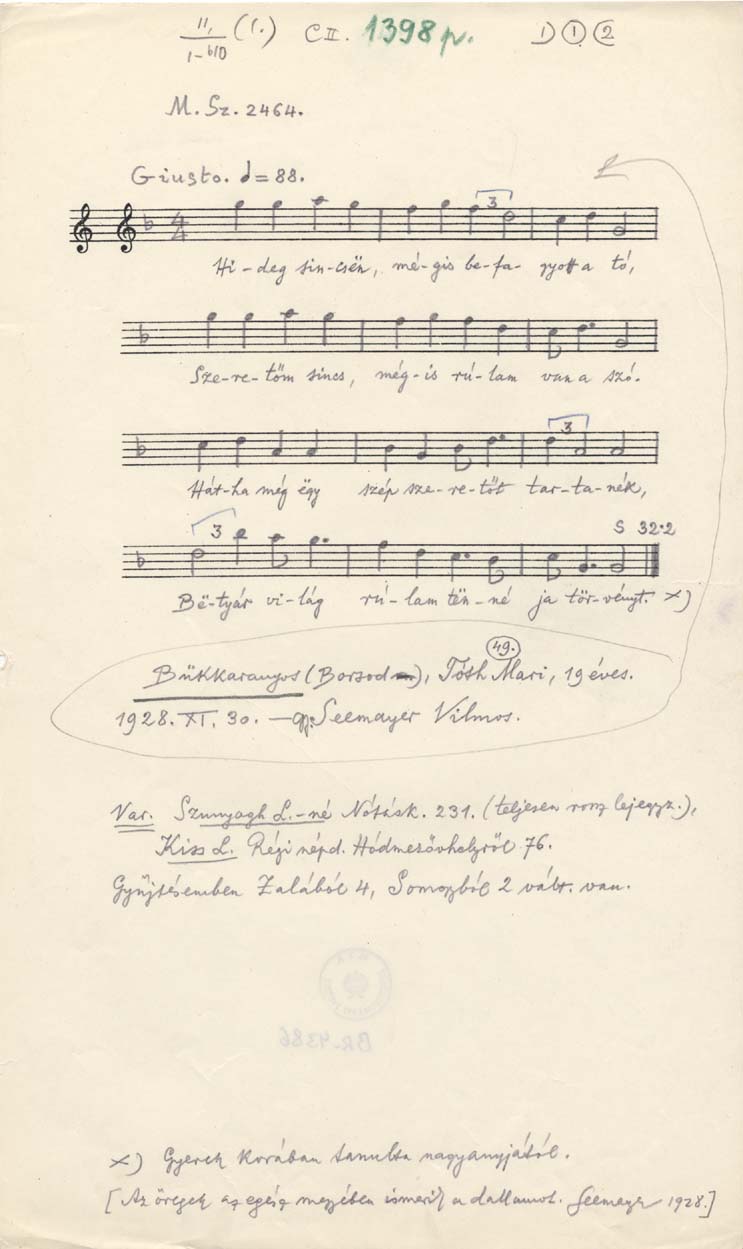 II,
1-b10 (1.) C II. 1398 p. 1) ① ②
M. Sz. 2464.
Giusto. = 88.
3
Hi-deg sin-csën, mé-gis be-fa- gyott a tó,
Sze-re-töm sincs, még-is rú-lam van a szó.
3
Hát-ha még ëgy szép sze-re-tőt tar-ta-nék,
3 S 32·2
Bë-tyár vi-lág rú-lam tën-né ja tör-vényt. x)
49.
Bükkaranyos (Borsod), Tóth Mari, 19 éves.
1928. XI. 30. — Seemayer Vilmos.
Var. Szunyogh L.-né Nótásk. 231. (teljesen rossz lejegyz.),
Kiss L. Régi népd. Hódmezővhelyről 76.
Gyűjtésemben Zalából 4, Somogyból 2 vált. van.
BR-4386
x) Gyerek korában tanulta nagyanyjától.
[Az öregek az egész megyében ismerik a dallamot. Seemayer 1928.]